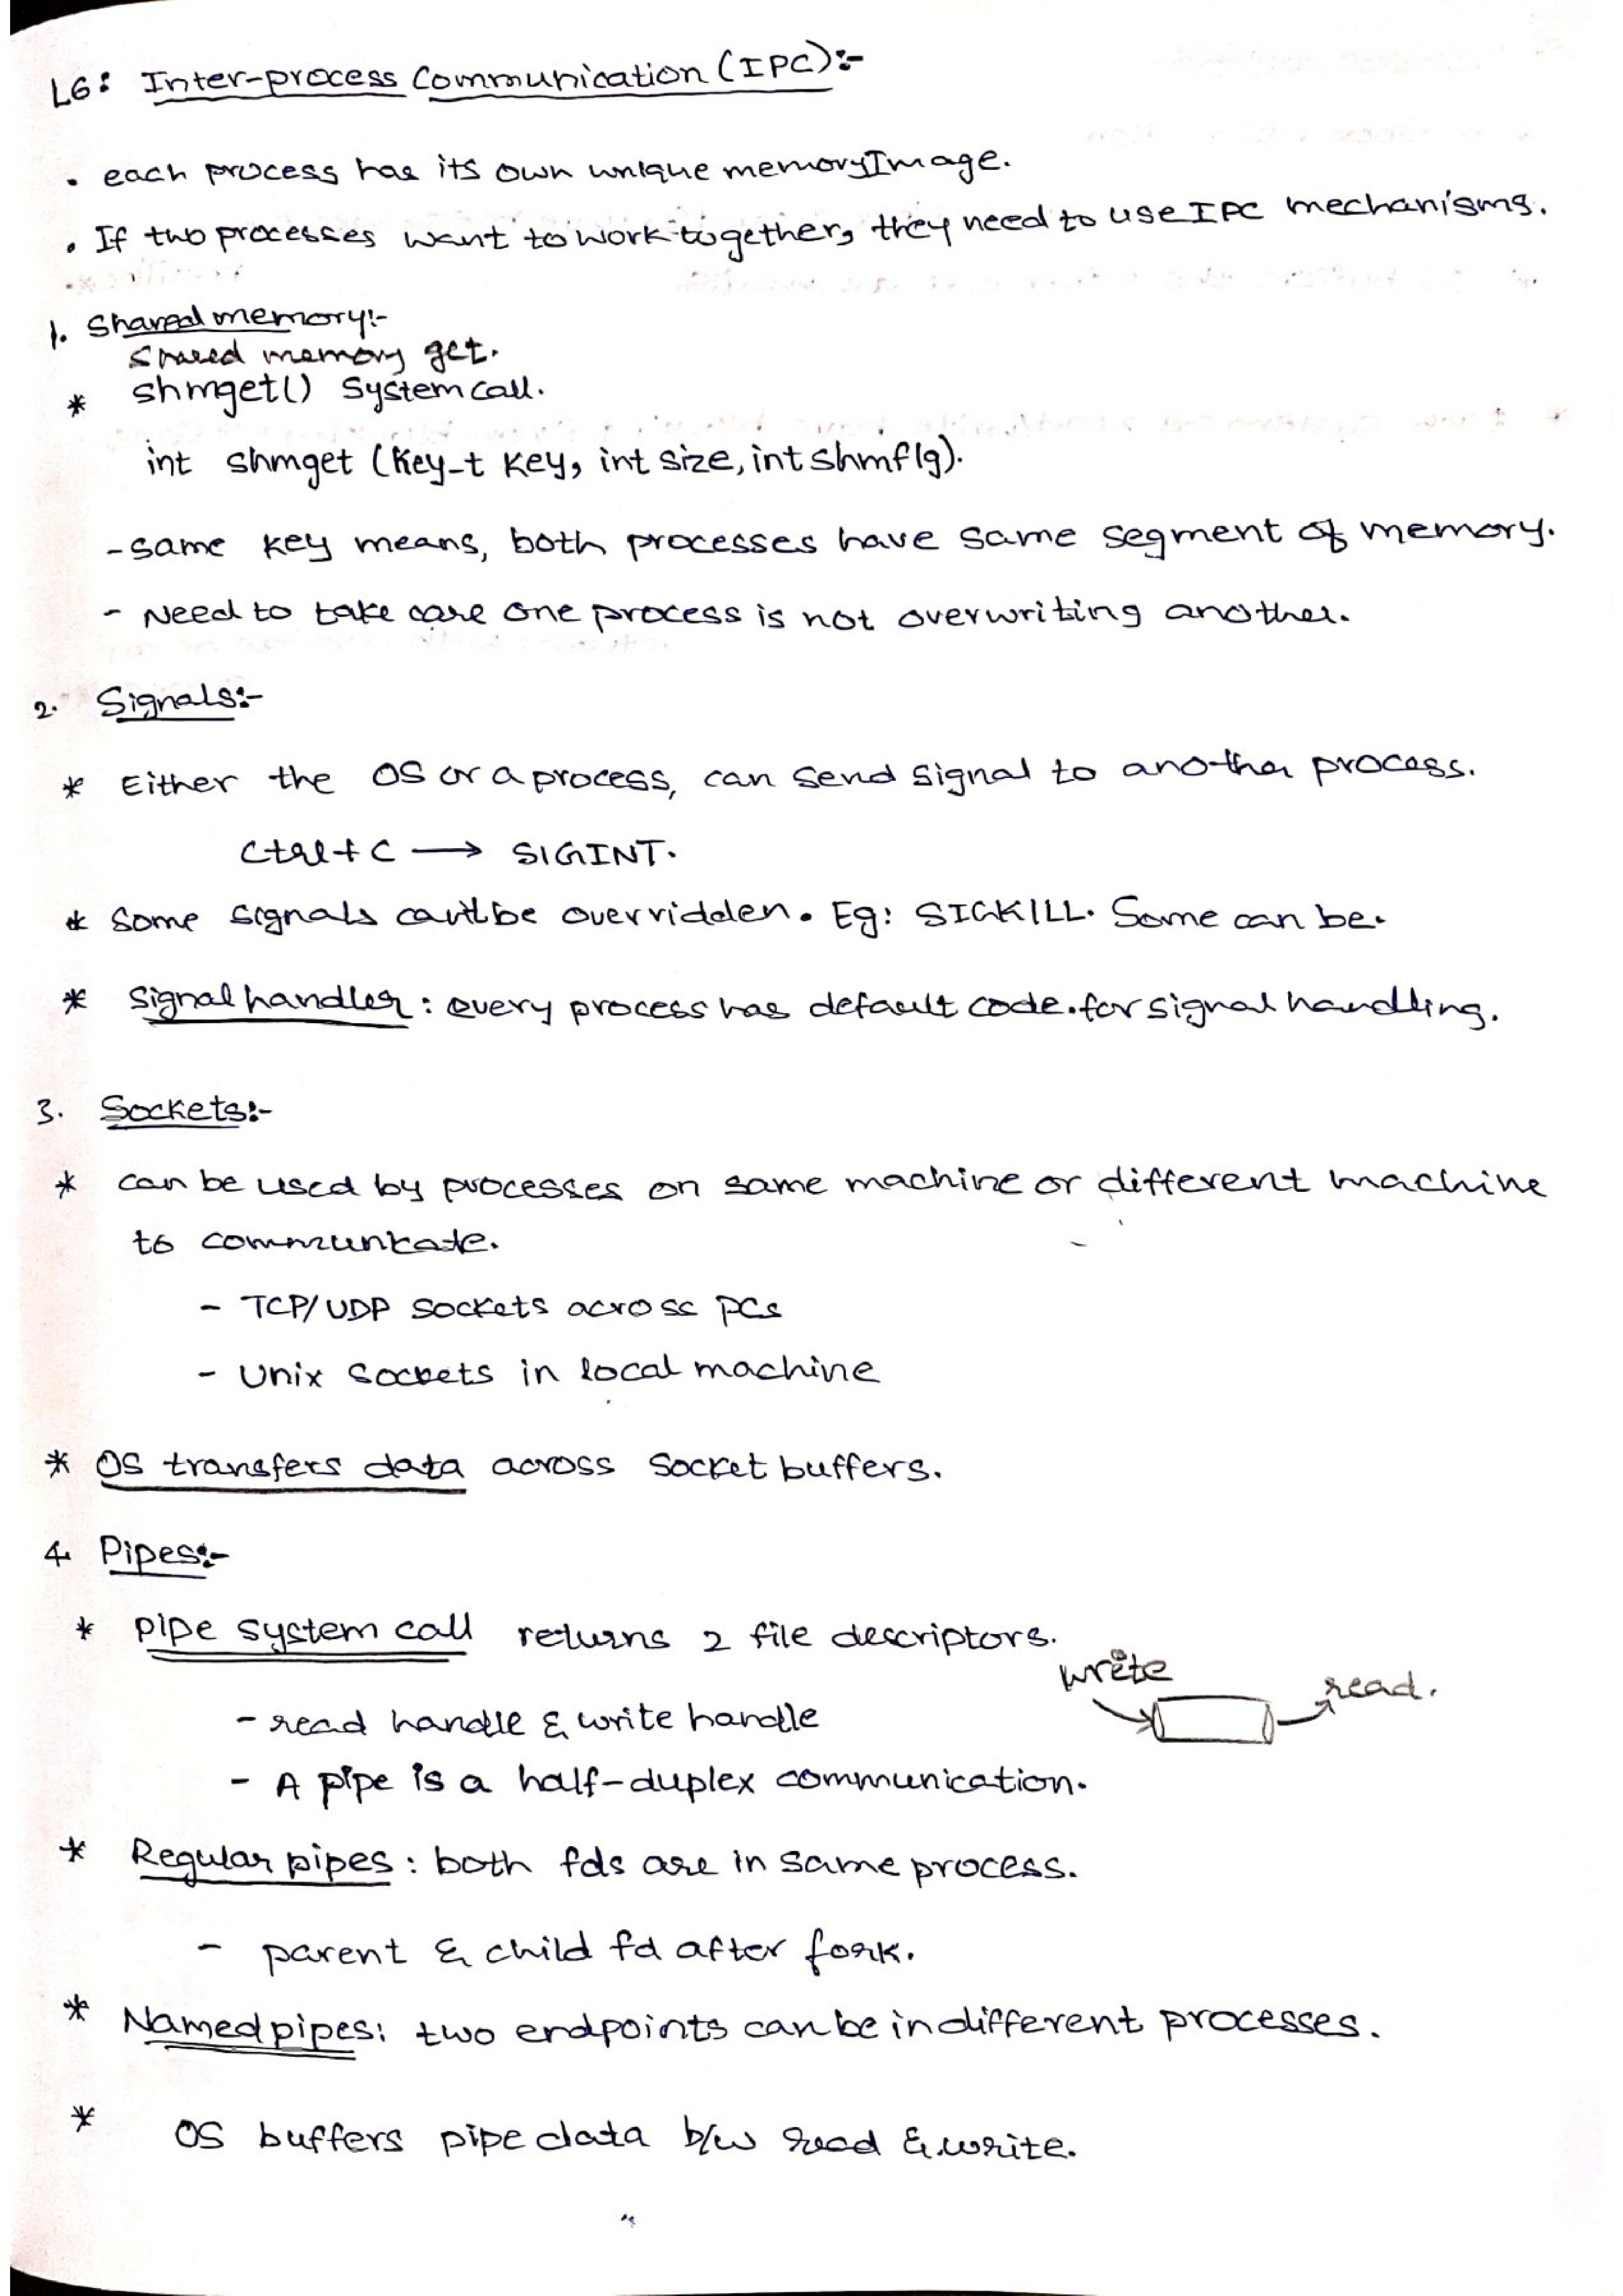 L6: Inter-process Communication (IPC):-
• each process has its own unique memory Image.
• If two processes want to work together, they need to use IPC mechanisms.
1. Shared memory:-
Shared memory get.
* shmget() system call.
int shmget (key-t key, int size, int shmflg).
- same key means, both processes have same segment of memory.
- Need to take care one process is not overwriting another.
2. Signals:-
* Either the OS or a process, can send signal to another process.
Ctrl+C → SIGINT.
* Some signals can't be overridden. Eg: SIGKILL. Some can be.
* Signal handler: every process has default code for signal handling.
3. Sockets:-
* can be used by processes on same machine or different machine
to communicate.
- TCP/UDP sockets across PCs
- Unix sockets in local machine
* OS transfers data across socket buffers.
4. Pipes:-
* pipe system call returns 2 file descriptors.
write read.
- read handle & write handle
- A pipe is a half-duplex communication.
* Regular pipes: both fds are in same process.
- parent & child fd after fork.
* Named pipes: two endpoints can be in different processes.
* OS buffers pipe data b/w read & write.